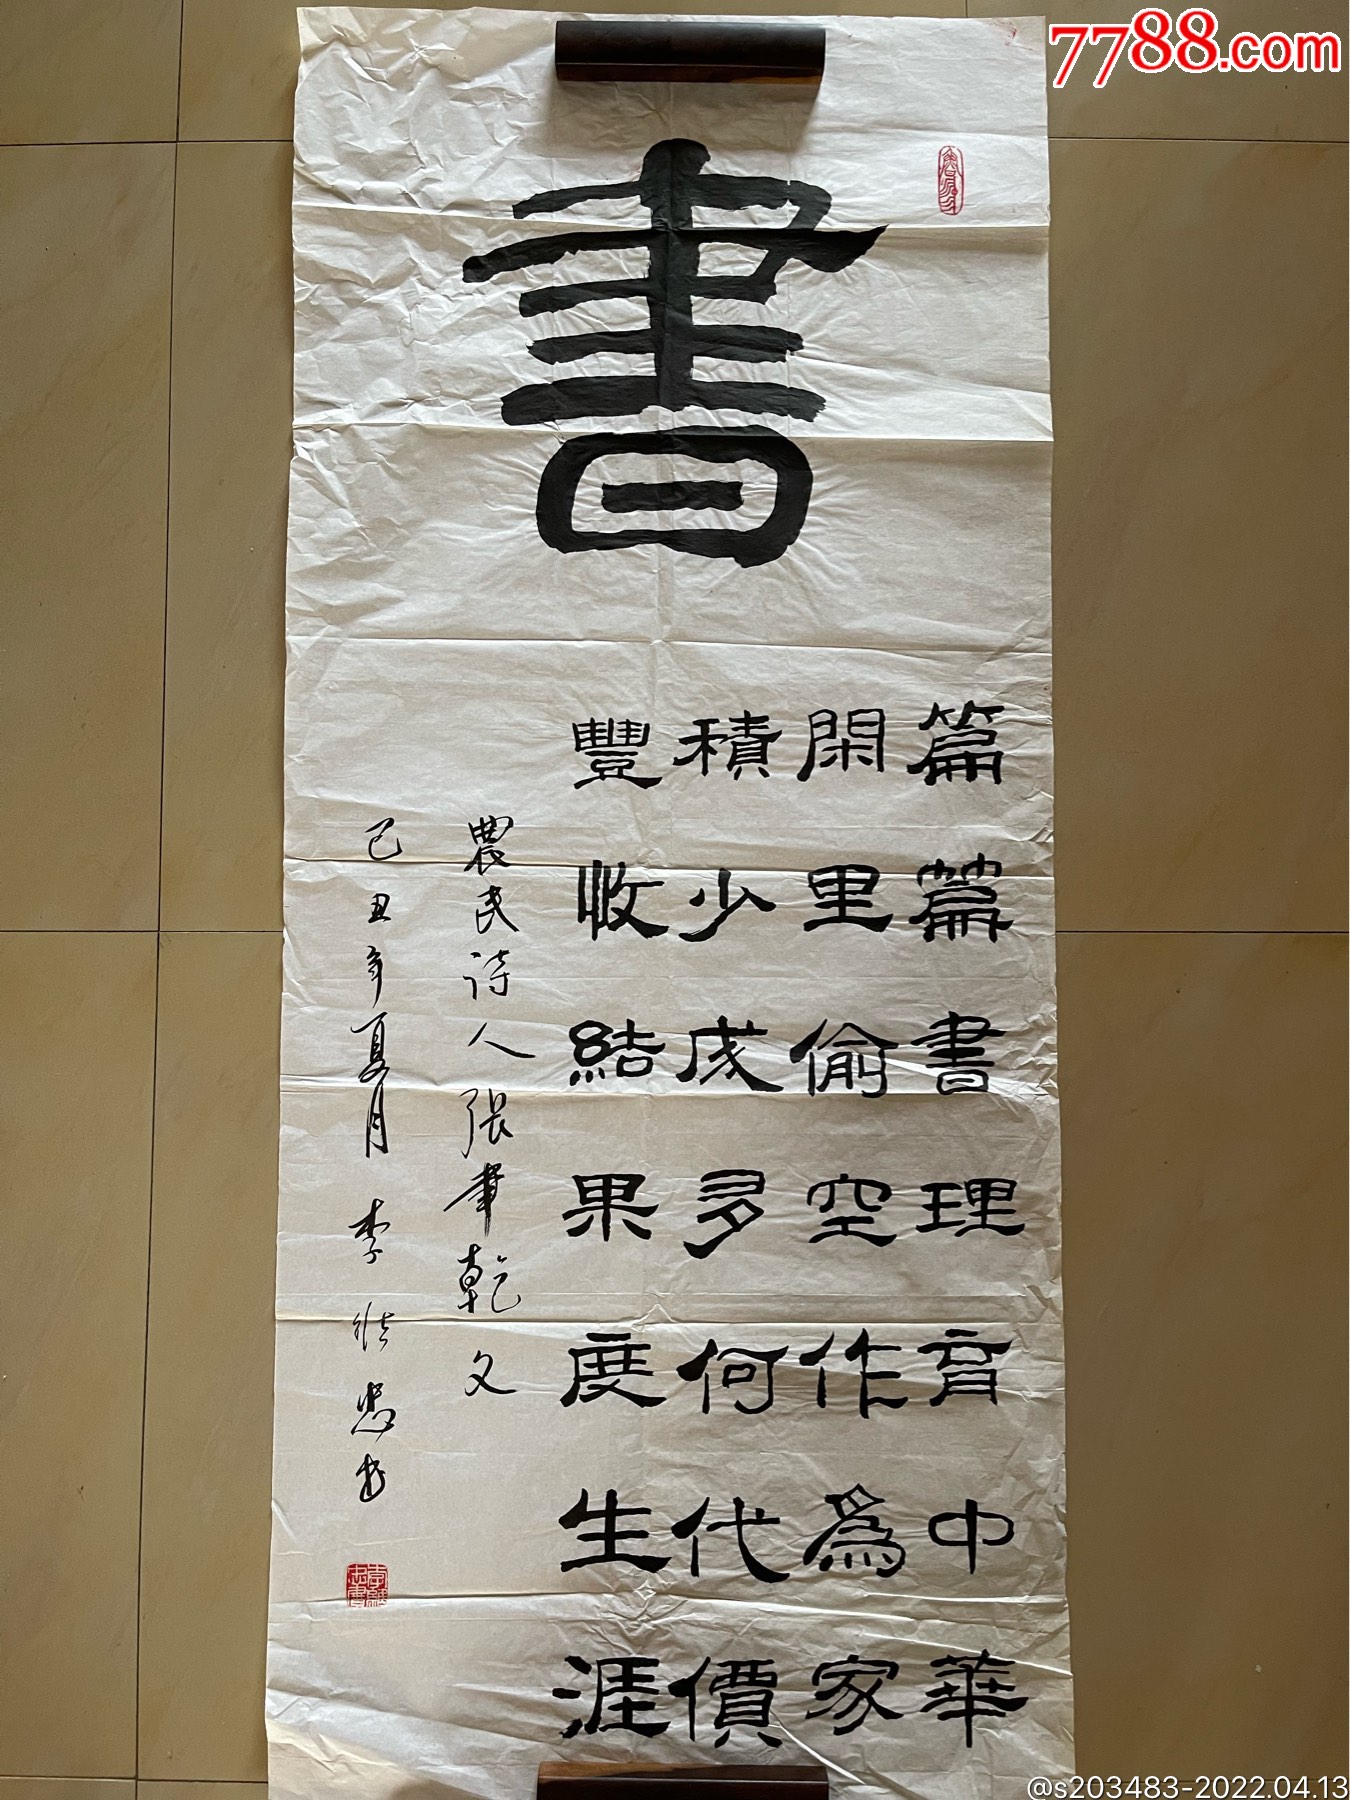 7788.com
書
篇篇書理育中華
閑里偷空作為家
積少成多何代價
豐收結果度生涯
農民詩人張筆乾文
己丑年夏月 李
@s203483-2022.04.13